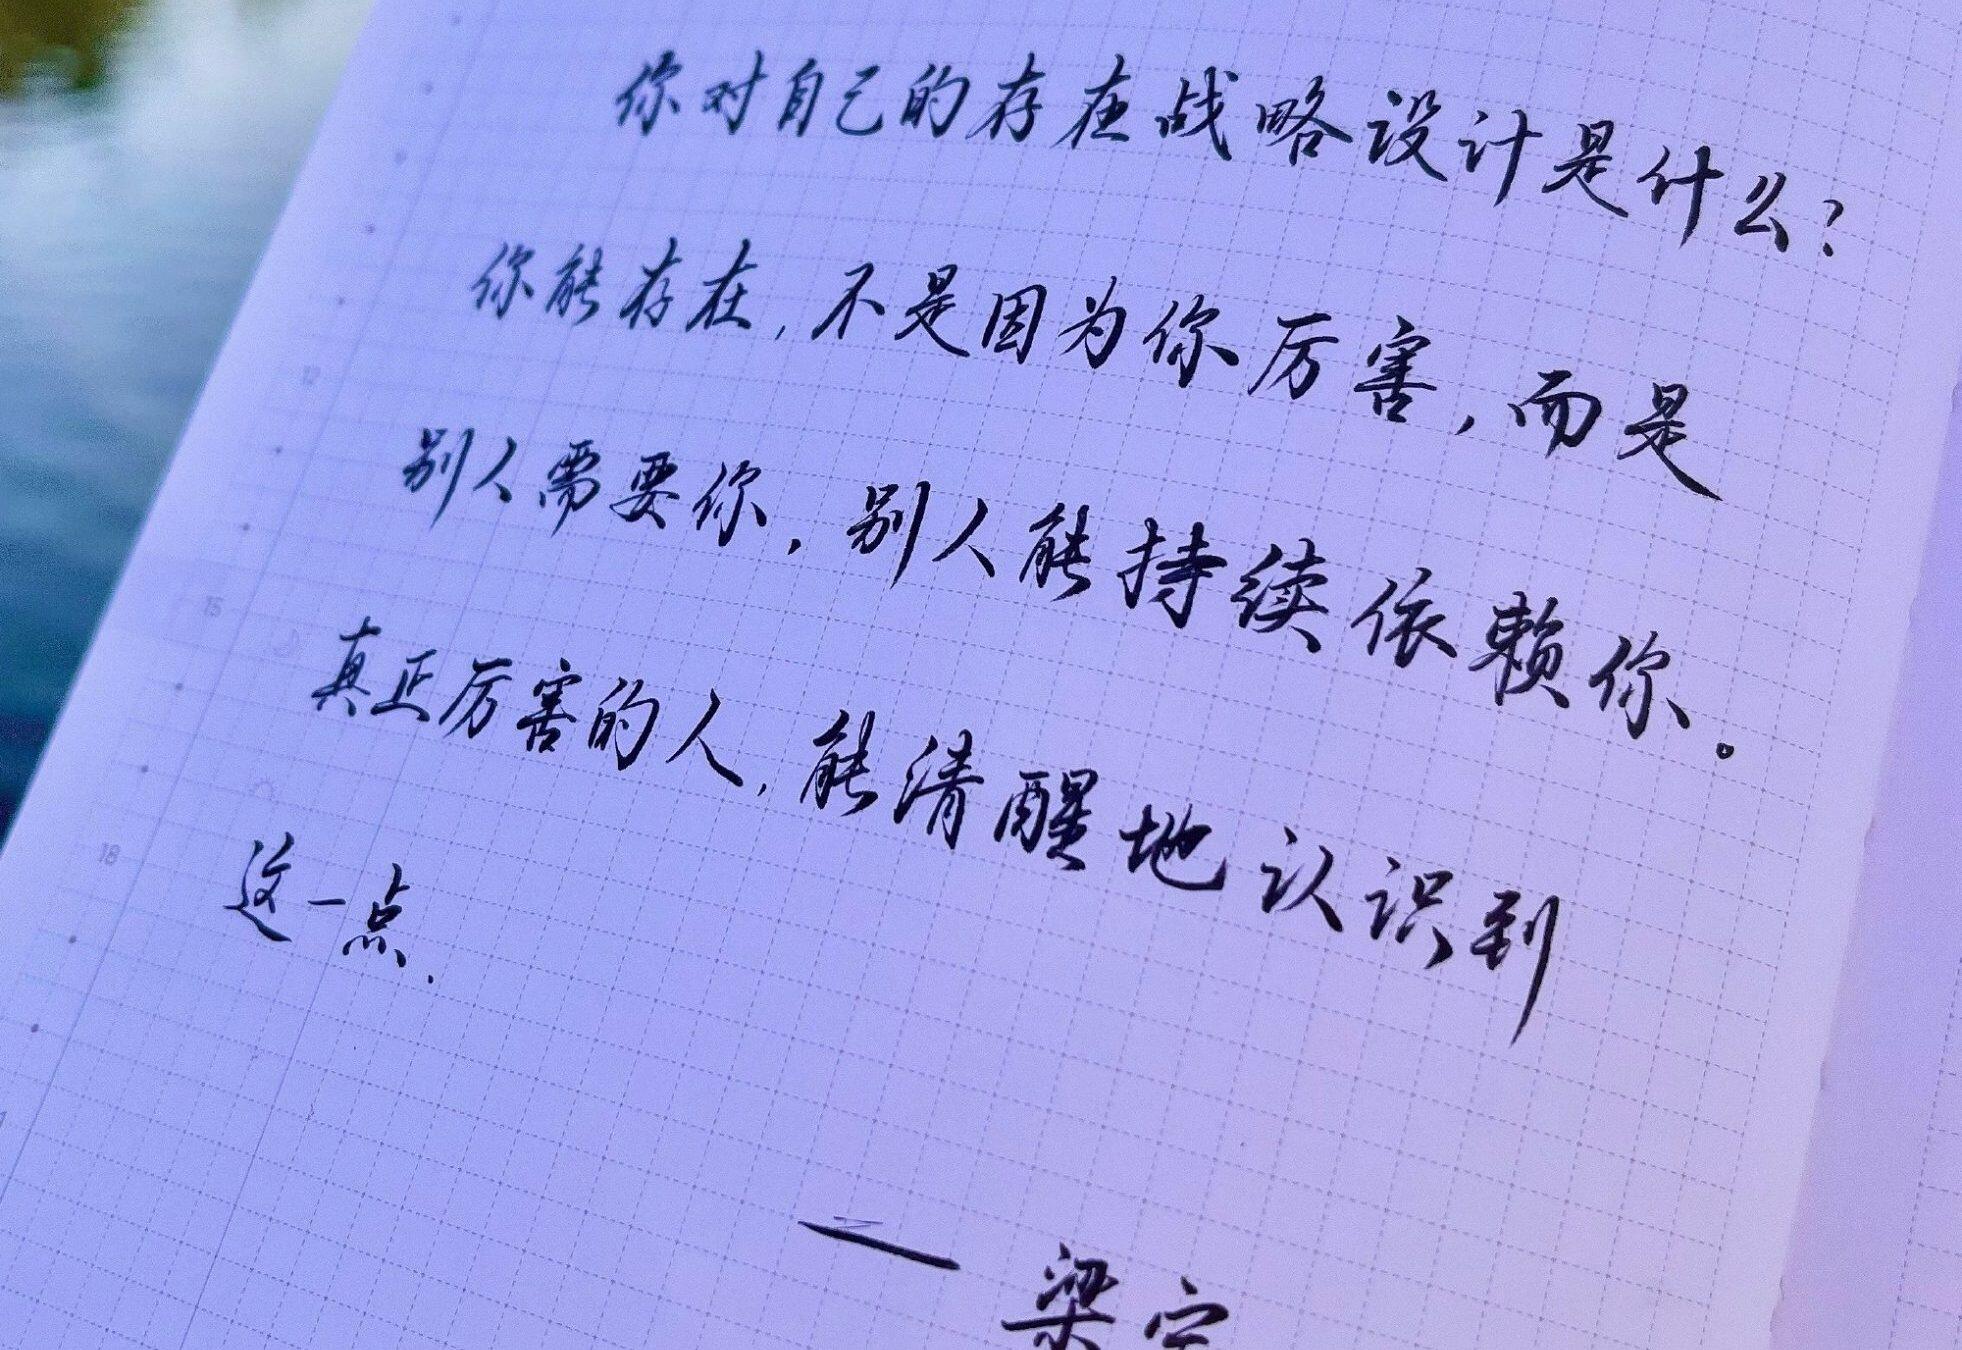 你对自己的存在战略设计是什么?
你能存在,不是因为你厉害,而是
别人需要你,别人能持续依赖你。
真正厉害的人,能清醒地认识到
这一点.
— 梁宁
12
15
18